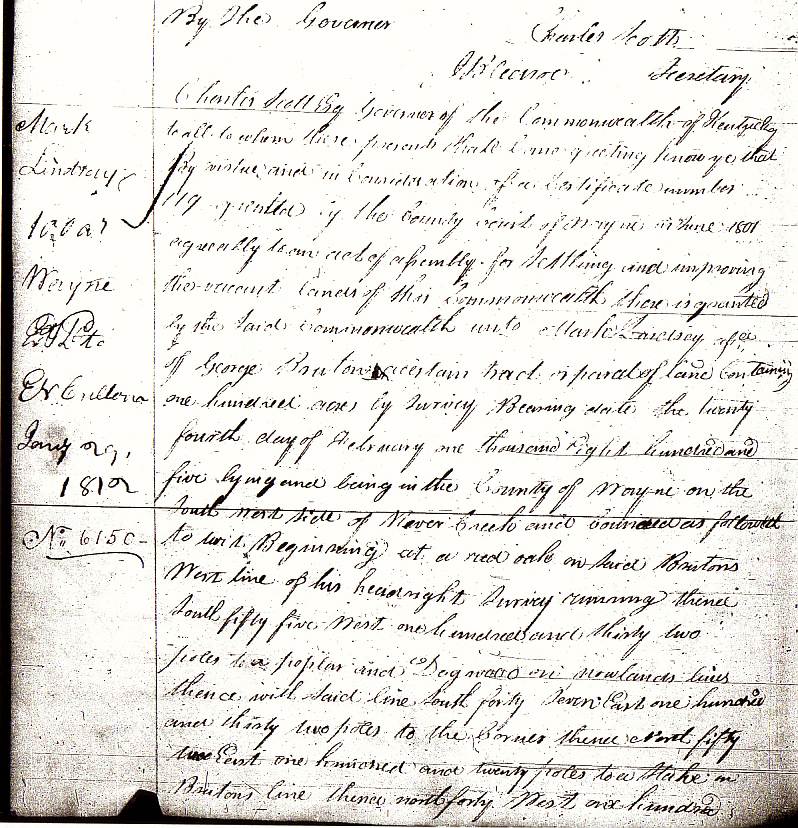 By the Governor
Charles Scott
Secretary
Mark
Lindsay
100 as
Wayne
Exd
Jany 29,
1812
No 6150
Charles Scott Esq Governor of the Commonwealth of Kentucky
to all to whom these presents shall Come greeting know ye that
By virtue and in Consideration of a Certificate number
119 granted by the County Court of Wayne in June 1801
agreeably to an act of assembly for settling and improving
the vacant lands of this Commonwealth there is granted
by the said Commonwealth unto Mark Lindsey
of George Bruton a certain tract or parcel of land Containing
one hundred acres by survey Bearing date the twenty
fourth day of February one thousand Eight hundred and
five lying and being in the County of Wayne on the
South west side of Creek and bounded as followeth
to wit, Beginning at a red oak on said Brutons
West line of his headright Survey running thence
South fifty five West one hundred and thirty two
poles to a poplar and Dogwood on newlands lines
thence with said line South forty Seven East one hundred
and thirty two poles to the Corner thence North fifty
two East one hundred and twenty poles to a Stake in
Brutons line thence north forty West one hundred